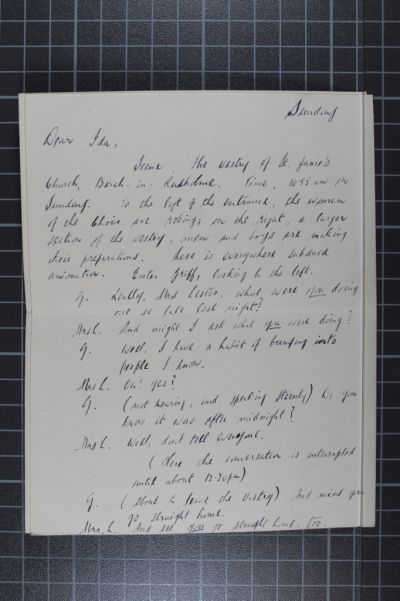 Sunday
Dear Ida,
Scene, the vestry of St. James's
Church, Birch-in-Rusholme. Time, 10.55 am on
Sunday. To the left of the entrance, the women
of the Choir are robing; on the right, a larger
section of the vestry, men and boys are making
their preparations. There is everywhere subdued
animation. Enter Griff, looking to the left.
G. Really, Mrs Lester, what were you doing
out so late last night?
Mrs L. And might I ask what you were doing?
G. Well, I have a habit of bumping into
people I know.
Mrs L. Oh! yes?
G. (not hearing, and speaking sternly) Do you
know it was after midnight?
Mrs L. Well, don't tell everyone.
(Here the conversation is interrupted
until about 12.30pm)
G. (about to leave the vestry) And mind you
go straight home.
Mrs. L. And see you go straight home, too.